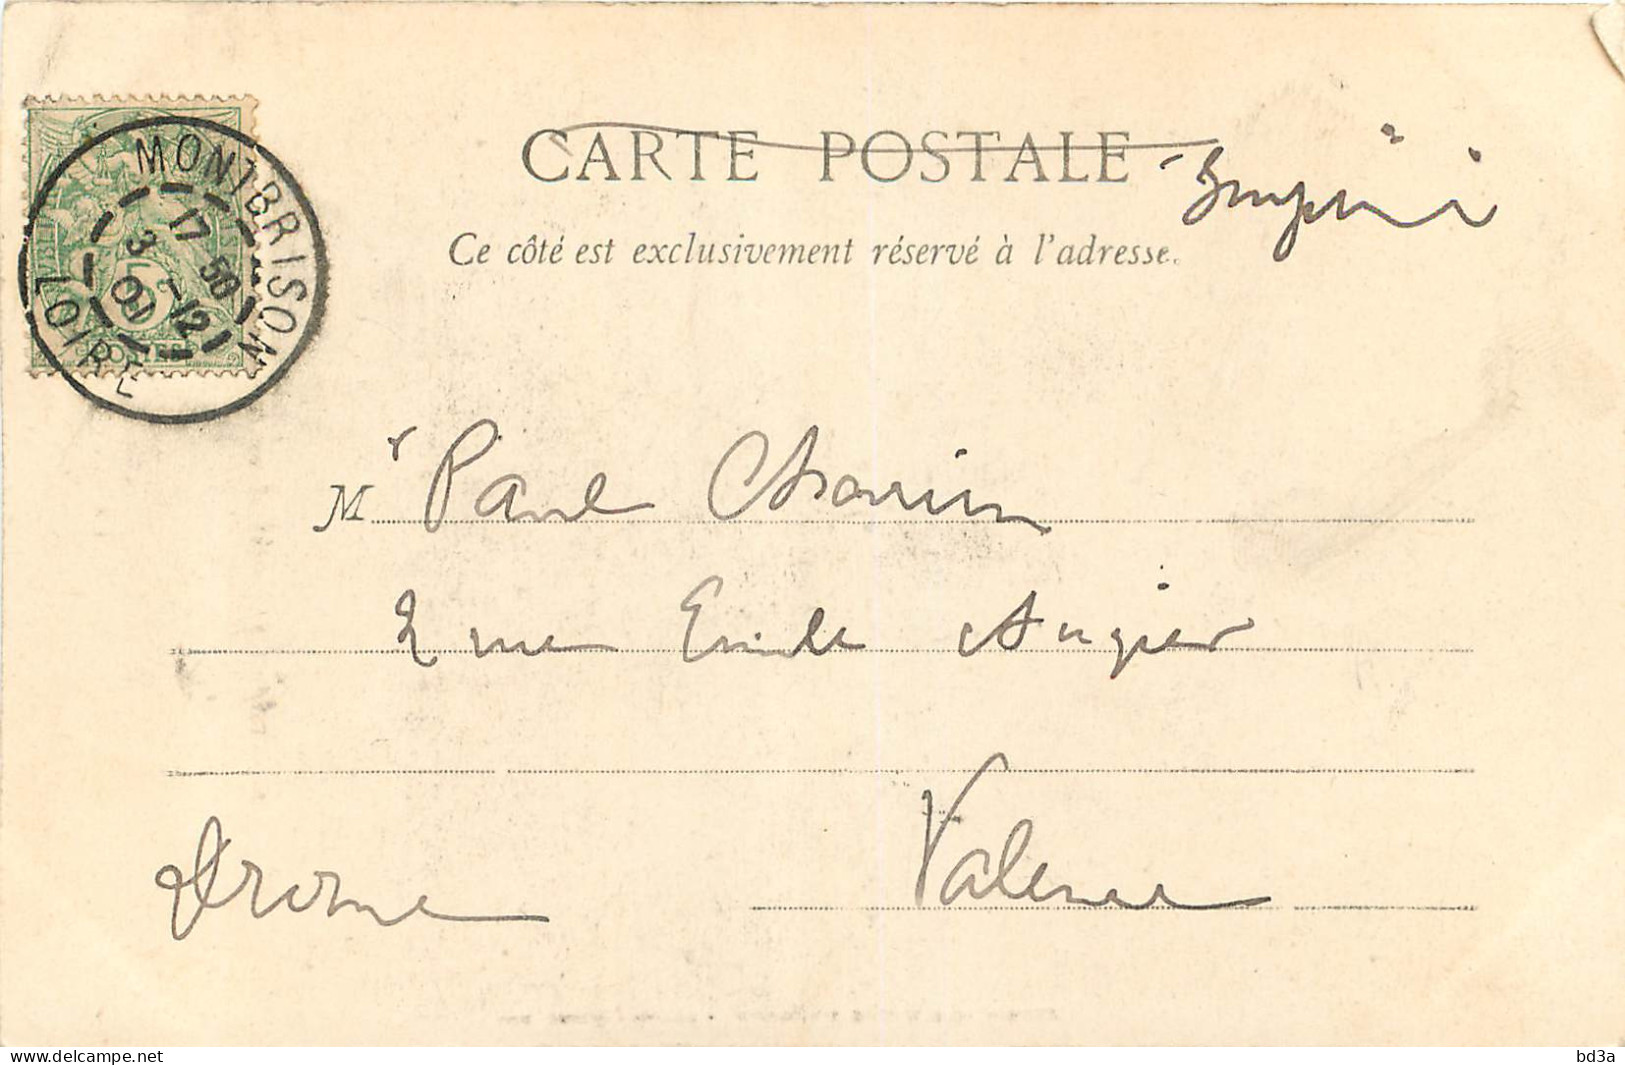 CARTE POSTALE
Imprimé
Ce côté est exclusivement réservé à l'adresse.
MONTBRISON
17 50
3 -12
LOIRE
5c
POSTES
Mr Paul
2 rue Emile Augier
Valence
Drome
delcampe.net
bd3a